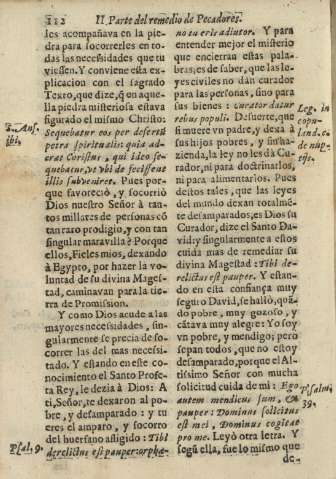 112 II. Parte del remedio de Pecadores.
les acompañava en la piedra
dra para socorrerles en todas
las necessidades que tu
viessen. Y conviene esta explicacion
con el sagrado
Texto, que dize, q̃ en aquella
piedra misteriosa estava
figurado el mismo Christo:
Sequebatur eos per desertũ
petra spiritualis: quia aderat
Coristus, qui ideo sequebatur,
ut ubi de fecissent
illis subvenire. Pues porque
favoreciò, y socorriò
Dios nuestro Señor à tantos
millares de personas cõ
tan raro prodigio, y con tan
singular maravilla? Porque
ellos, Fieles mios, dexando
à Egypto, por hazer la voluntad
de su divina Magestad,
caminavan para la tierra
de Promission.
Y como Dios acude a las
mayores necessidades, singularmente
se precia de socorrer
las del mas necessitado.
Y estando en este conocimiento
el Santo Profeta
Rey, le dezia à Dios: A
ti, Señor, te dexaron al pobre,
y desamparado: y tu
eres el amparo, y socorro
del huerfano afligido: Tibi
derelictus est pauper: orphæ-
S. Aus.
ibi,
Psal, 9.
no tu eris adiutor. Y para
entender mejor el misterio
que encierran estas palabras;
es de saber, que las leyes
civiles no dãn curador
para las personas, sino para
sus bienes: curator datur
rebus populi. De suerte, que
si muere vn padre, y dexa à
sus hijos pobres, y sin hazienda,
la ley no les dà Curador,
ni para doctrinarlos,
ni para alimentarlos. Pues
destos tales, que las leyes
del mundo dexan totalmẽte
desamparados, es Dios su
Curador, dize el Santo David:
y singularmente a essos
cuida mas de remediar su
divina Magestad: Tibi derelictus
est pauper. Y estando
en esta confiança muy
seguro David, se hallò, quãdo
pobre, muy gozoso, y
cãtava muy alegre: Yo soy
vn pobre, y mendigo; pero
sepan todos, que no estoy
desamparado, porque el Altissimo
Señor con mucha
solicitud cuida de mi: Ego
autem mendicus sum, &
pauper: Dominus solicitus
est mei, Dominus cogitat
pro me. Leyò otra letra. Y
segũ ella, fue lo mismo que
de-
Leg. in
copu-
land. c.
de nup-
tijs.
Psalm.
39.